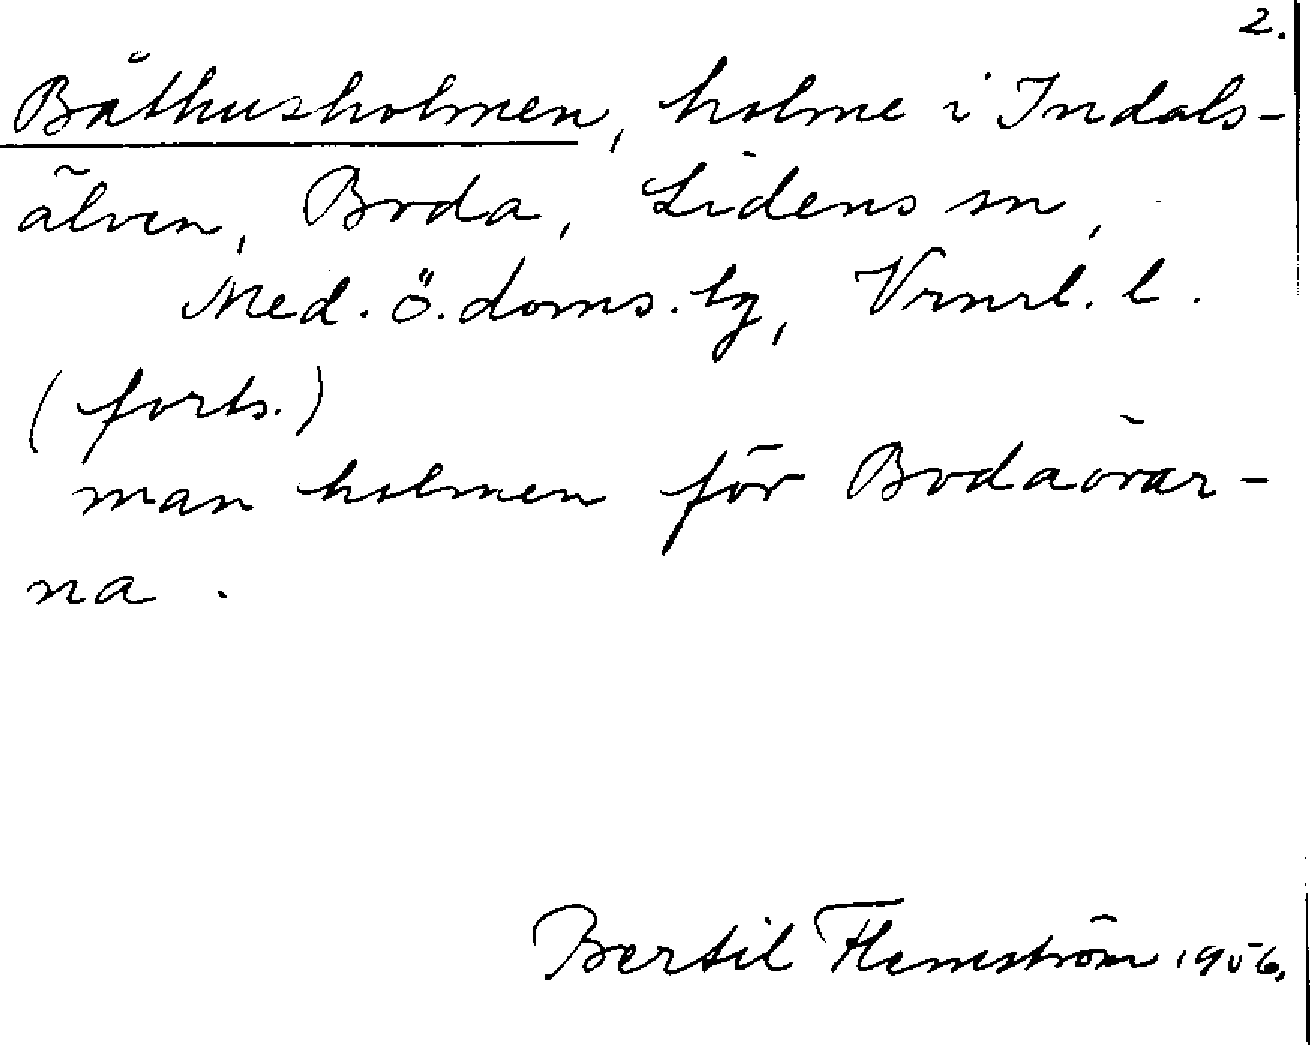 2.
Båthusholmen, holme i Indals-
älven, Boda, Lidens sn,
Med. ö. doms. lg, Vrnrl. l.
(forts.)
man holmen för Bodaörar-
na.
Bertil Flemström 1956.